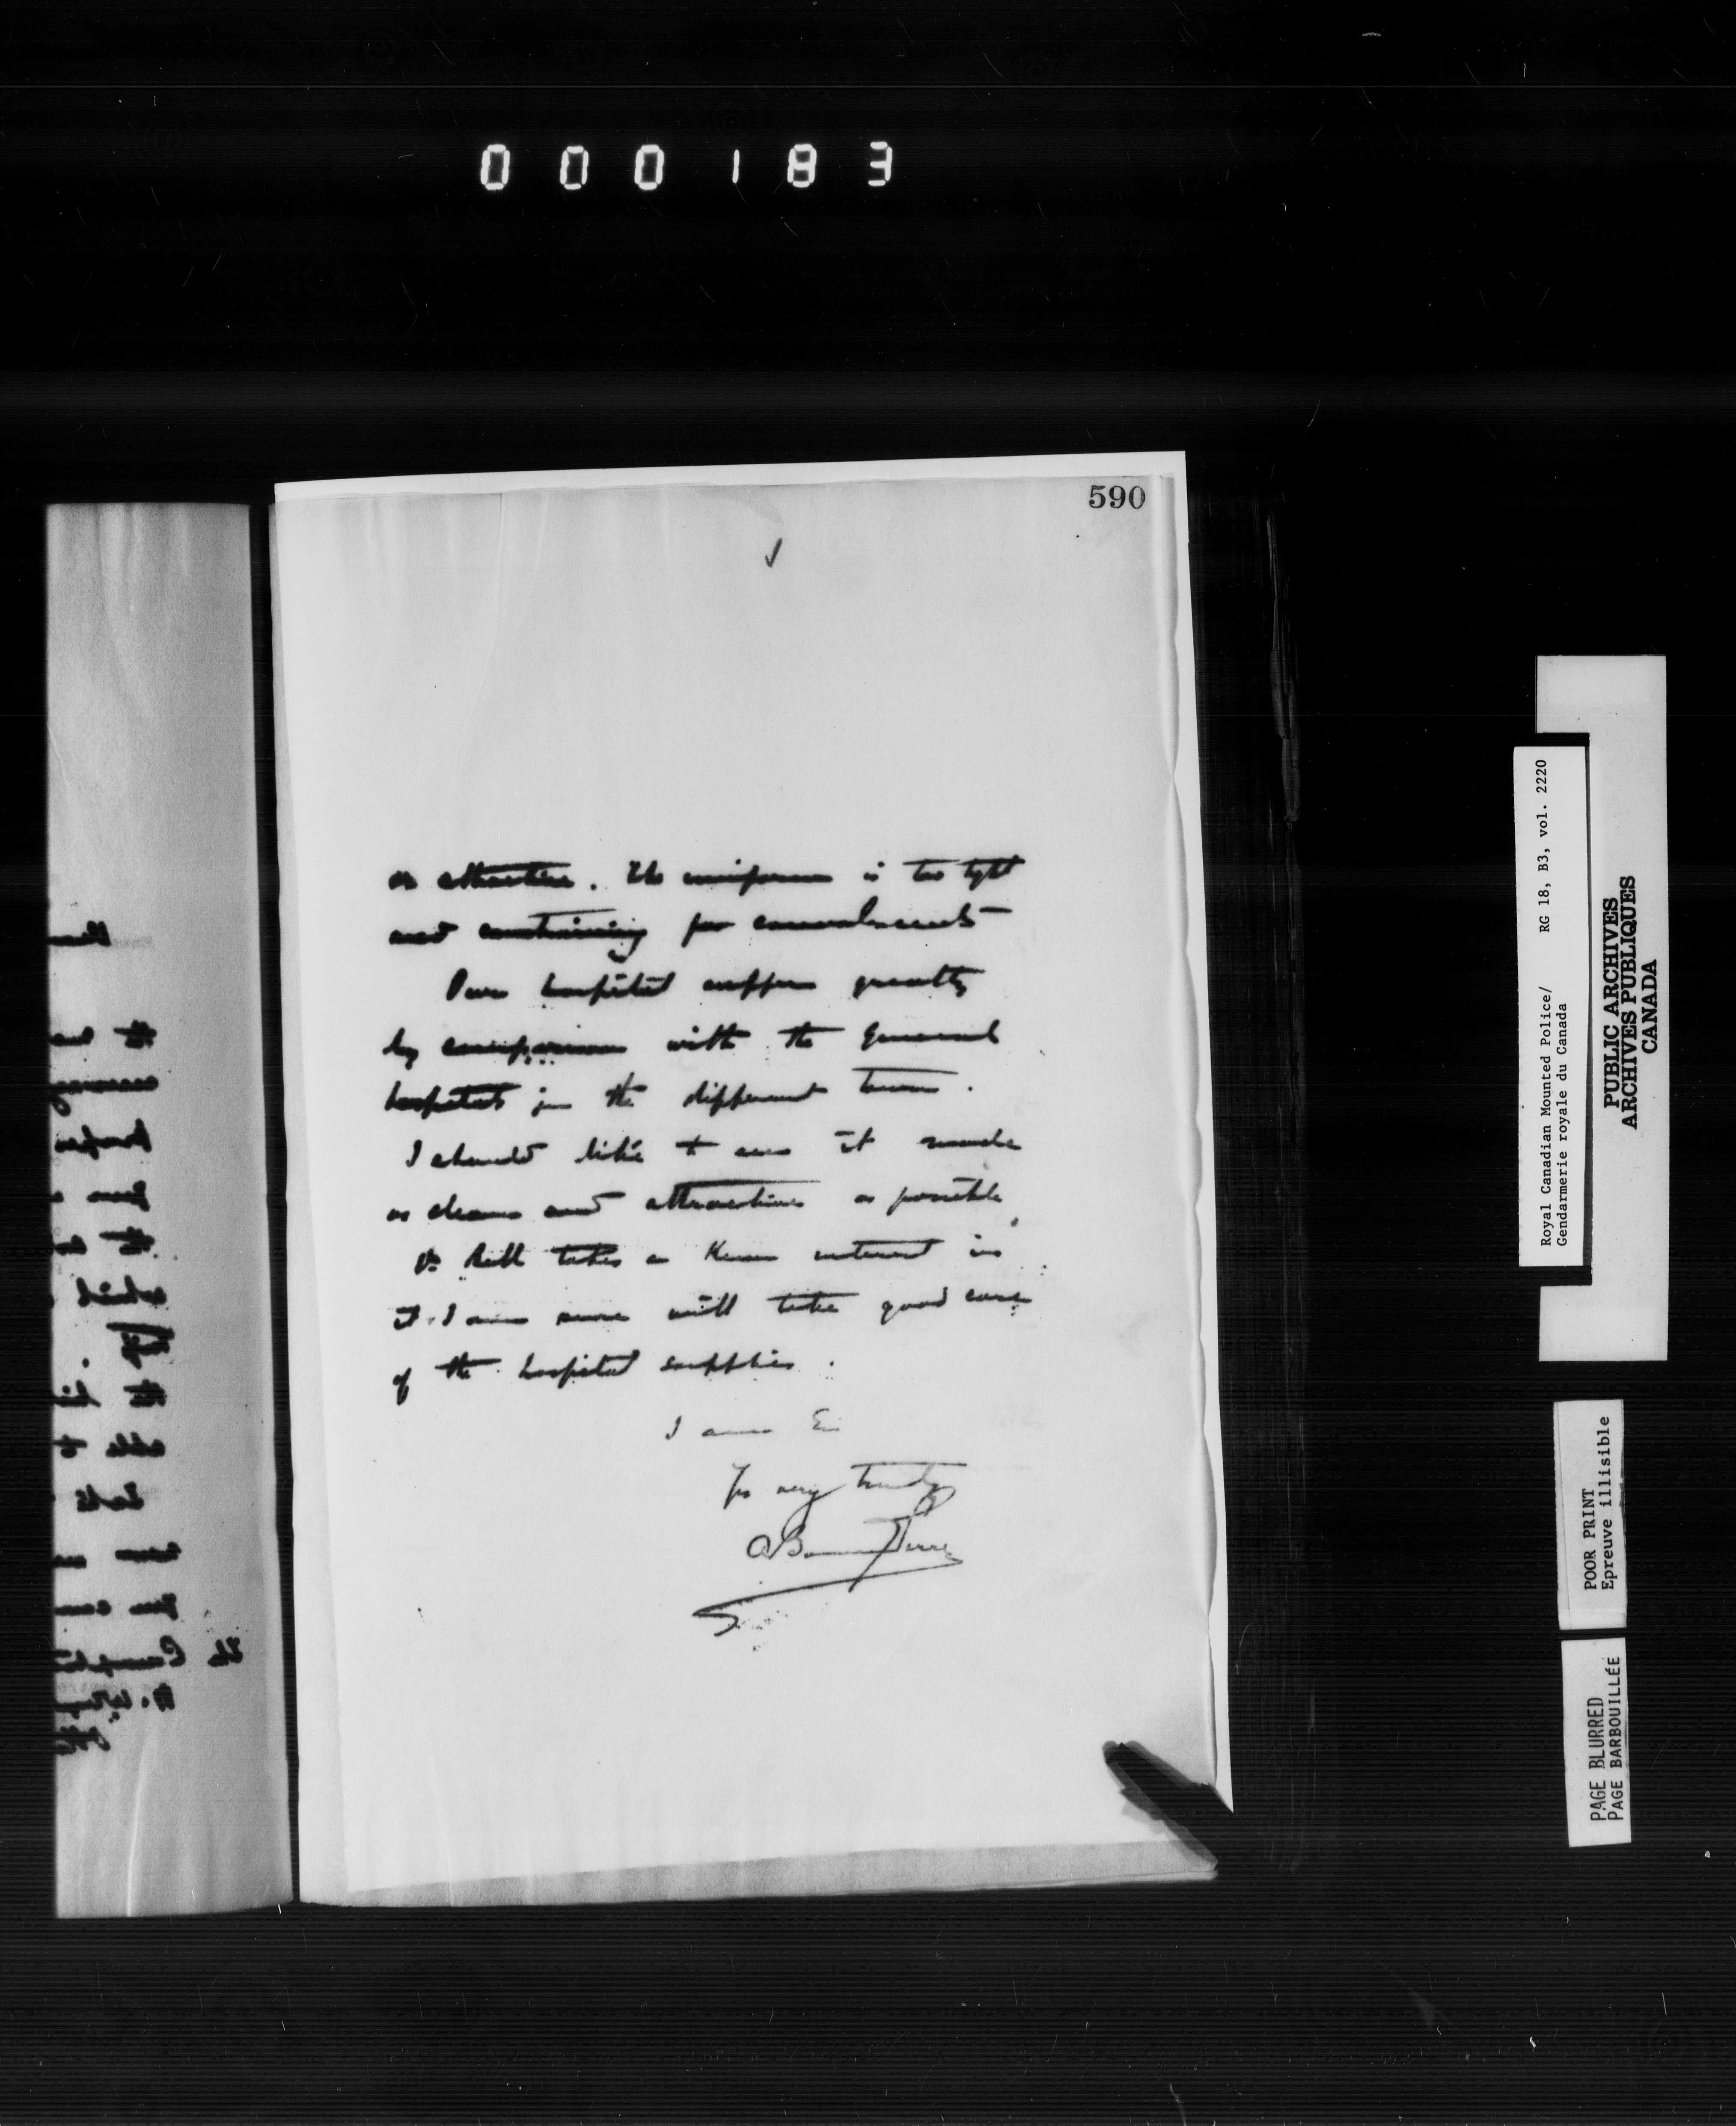 000183
590
or attractive. The uniform is too tight
and constraining for convalescents
Our hospital suffers greatly
by comparison with the General
hospitals in the different towns.
I should like to see it made
as clean and attractive as possible
Dr Bell takes a Keen interest in
it. I am sure will take good care
of the hospital supplies.
I am Sir
Yrs very truly
A Bowen Perry
the
The
Royal Canadian Mounted Police/ RG 18, B3, vol. 2220
Gendarmerie royale du Canada
PUBLIC ARCHIVES
ARCHIVES PUBLIQUES
CANADA
POOR PRINT
Epreuve illisible
PAGE BLURRED
PAGE BARBOUILLÉE